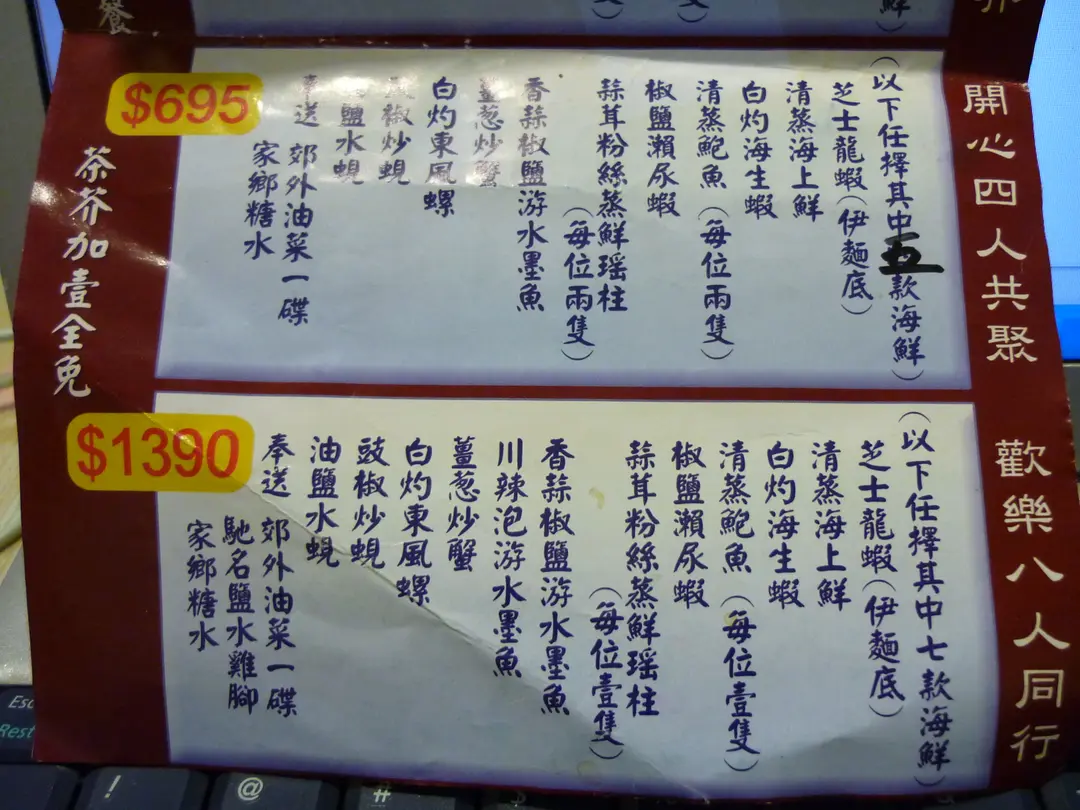 餐
鮮
開心四人共聚
(以下任擇其中五款海鮮)
芝士龍蝦(伊麵底)
清蒸海上鮮
白灼海生蝦
清蒸鮑魚(每位兩隻)
椒鹽瀨尿蝦
蒜茸粉絲蒸鮮瑶柱
(每位兩隻)
香蒜椒鹽游水墨魚
薑葱炒蟹
白灼東風螺
椒炒蜆
鹽水蜆
奉送
郊外油菜一碟
家鄉糖水
$695
歡樂八人同行
(以下任擇其中七款海鮮)
芝士龍蝦(伊麵底)
清蒸海上鮮
白灼海生蝦
清蒸鮑魚(每位壹隻)
椒鹽瀨尿蝦
蒜茸粉絲蒸鮮瑶柱
(每位壹隻)
香蒜椒鹽游水墨魚
川辣泡游水墨魚
薑葱炒蟹
白灼東風螺
豉椒炒蜆
油鹽水蜆
奉送
郊外油菜一碟
馳名鹽水雞腳
家鄉糖水
$1390
茶芥加壹全免
Esc
Rest
!
@
#